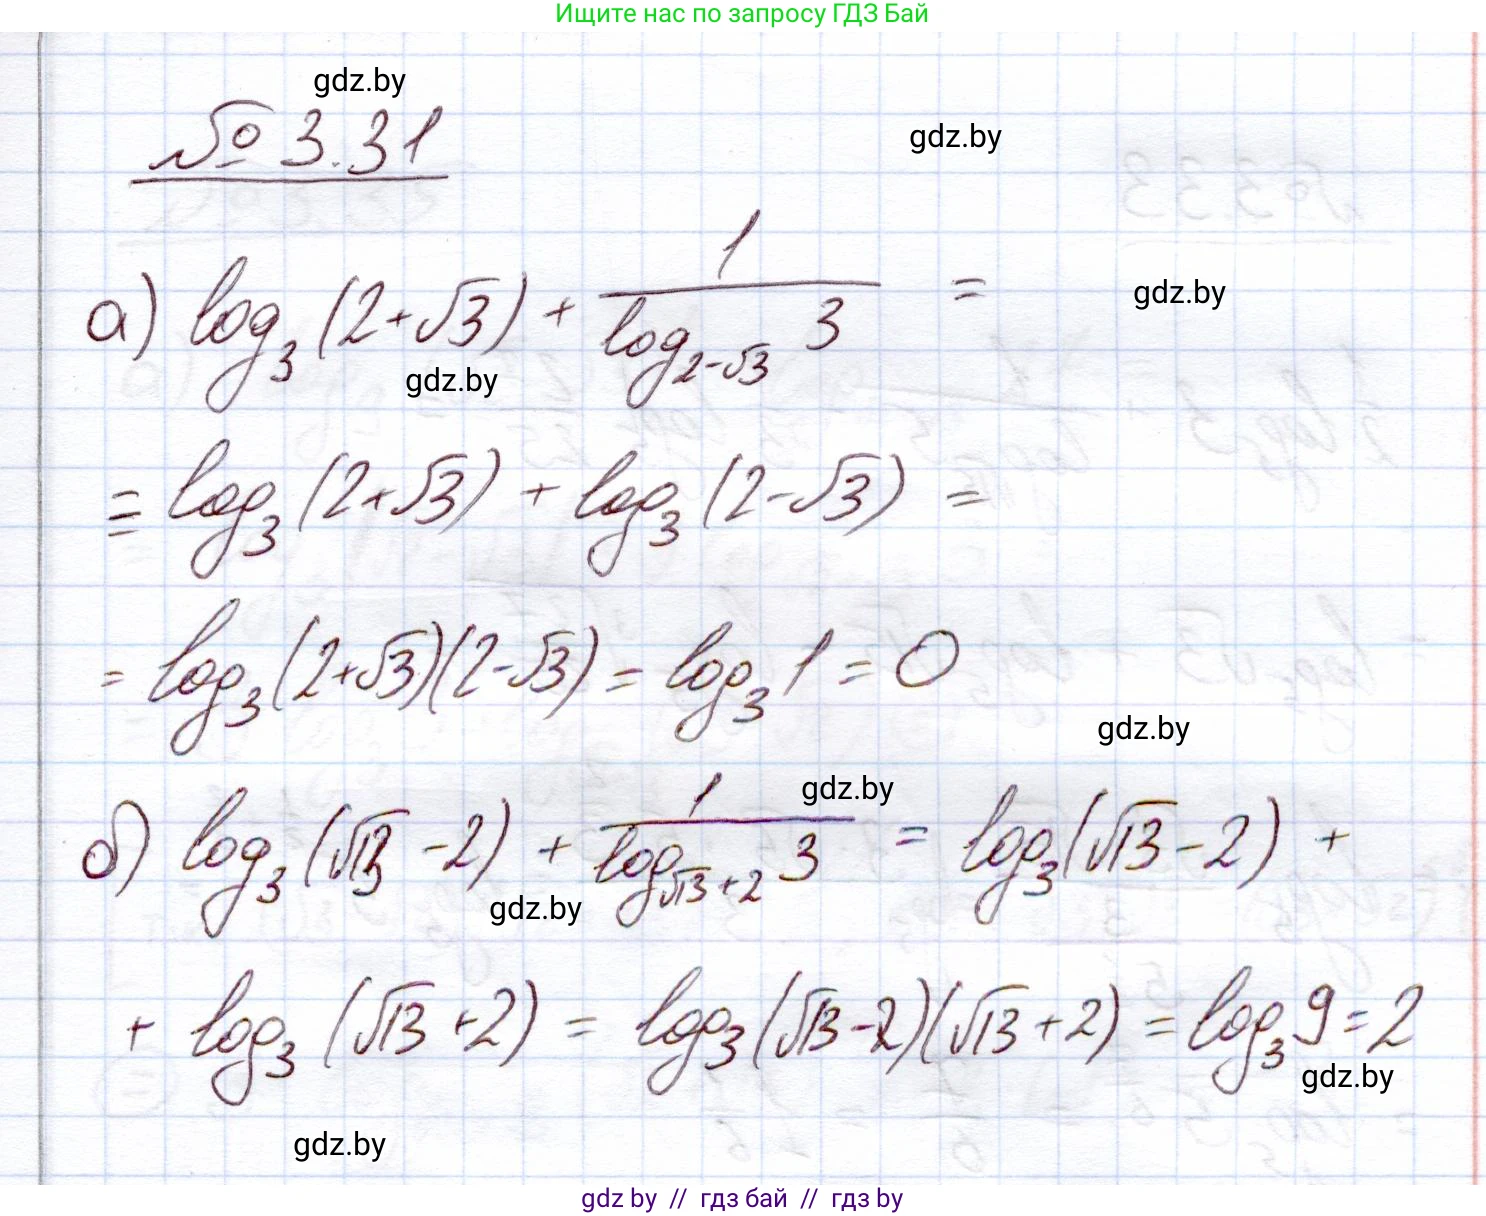 Ищите нас по запросу ГДЗ Бай
gdz.by
№ 3.31
gdz.by
а) log₃(2+√3) + 1/(log_{2-√3} 3) =
gdz.by
gdz.by
= log₃(2+√3) + log₃(2-√3) =
= log₃(2+√3)(2-√3) = log₃1 = 0
gdz.by
gdz.by
б) log₃(√13 -2) + 1/(log_{√13+2} 3) = log₃(√13-2) +
gdz.by
+ log₃(√13+2) = log₃(√13-2)(√13+2) = log₃9=2
gdz.by
gdz.by
gdz.by // гдз бай // гдз by